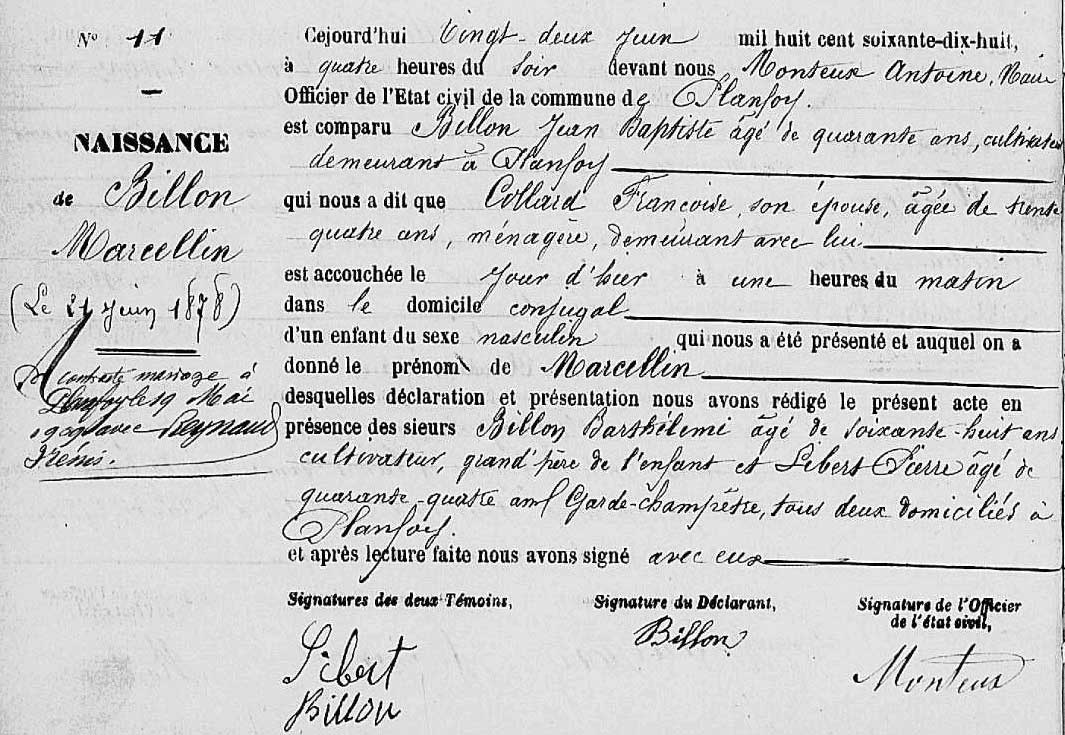 N° 11
NAISSANCE
de Billon
Marcellin
(Le 21 Juin 1878)
contracté mariage à
Planfoy le 19 Mai
avec Peynaud
Cejourd'hui Vingt-deux Juin mil huit cent soixante-dix-huit,
à quatre heures du soir devant nous Monteux Antoine, Maire
Officier de l'Etat civil de la commune de Planfoy.
est comparu Billon Jean Baptiste âgé de quarante ans, cultivateur
demeurant à Planfoy
qui nous a dit que Collard Françoise, son épouse, âgée de trente
quatre ans, ménagère, demeurant avec lui
est accouchée le jour d'hier à une heures du matin
dans le domicile conjugal
d'un enfant du sexe masculin qui nous a été présenté et auquel on a
donné le prénom de Marcellin
desquelles déclaration et présentation nous avons rédigé le présent acte en
présence des sieurs Billon Barthélemi âgé de soixante-huit ans
cultivateur, grand'père de l'enfant et Sibert Pierre âgé de
quarante-quatre ans Garde-champêtre, tous deux domiciliés à
Planfoy.
et après lecture faite nous avons signé avec eux
Signatures des deux Témoins,
Sibert
Billon
Signature du Déclarant,
Billon
Signature de l'Officier
de l'état civil,
Monteux